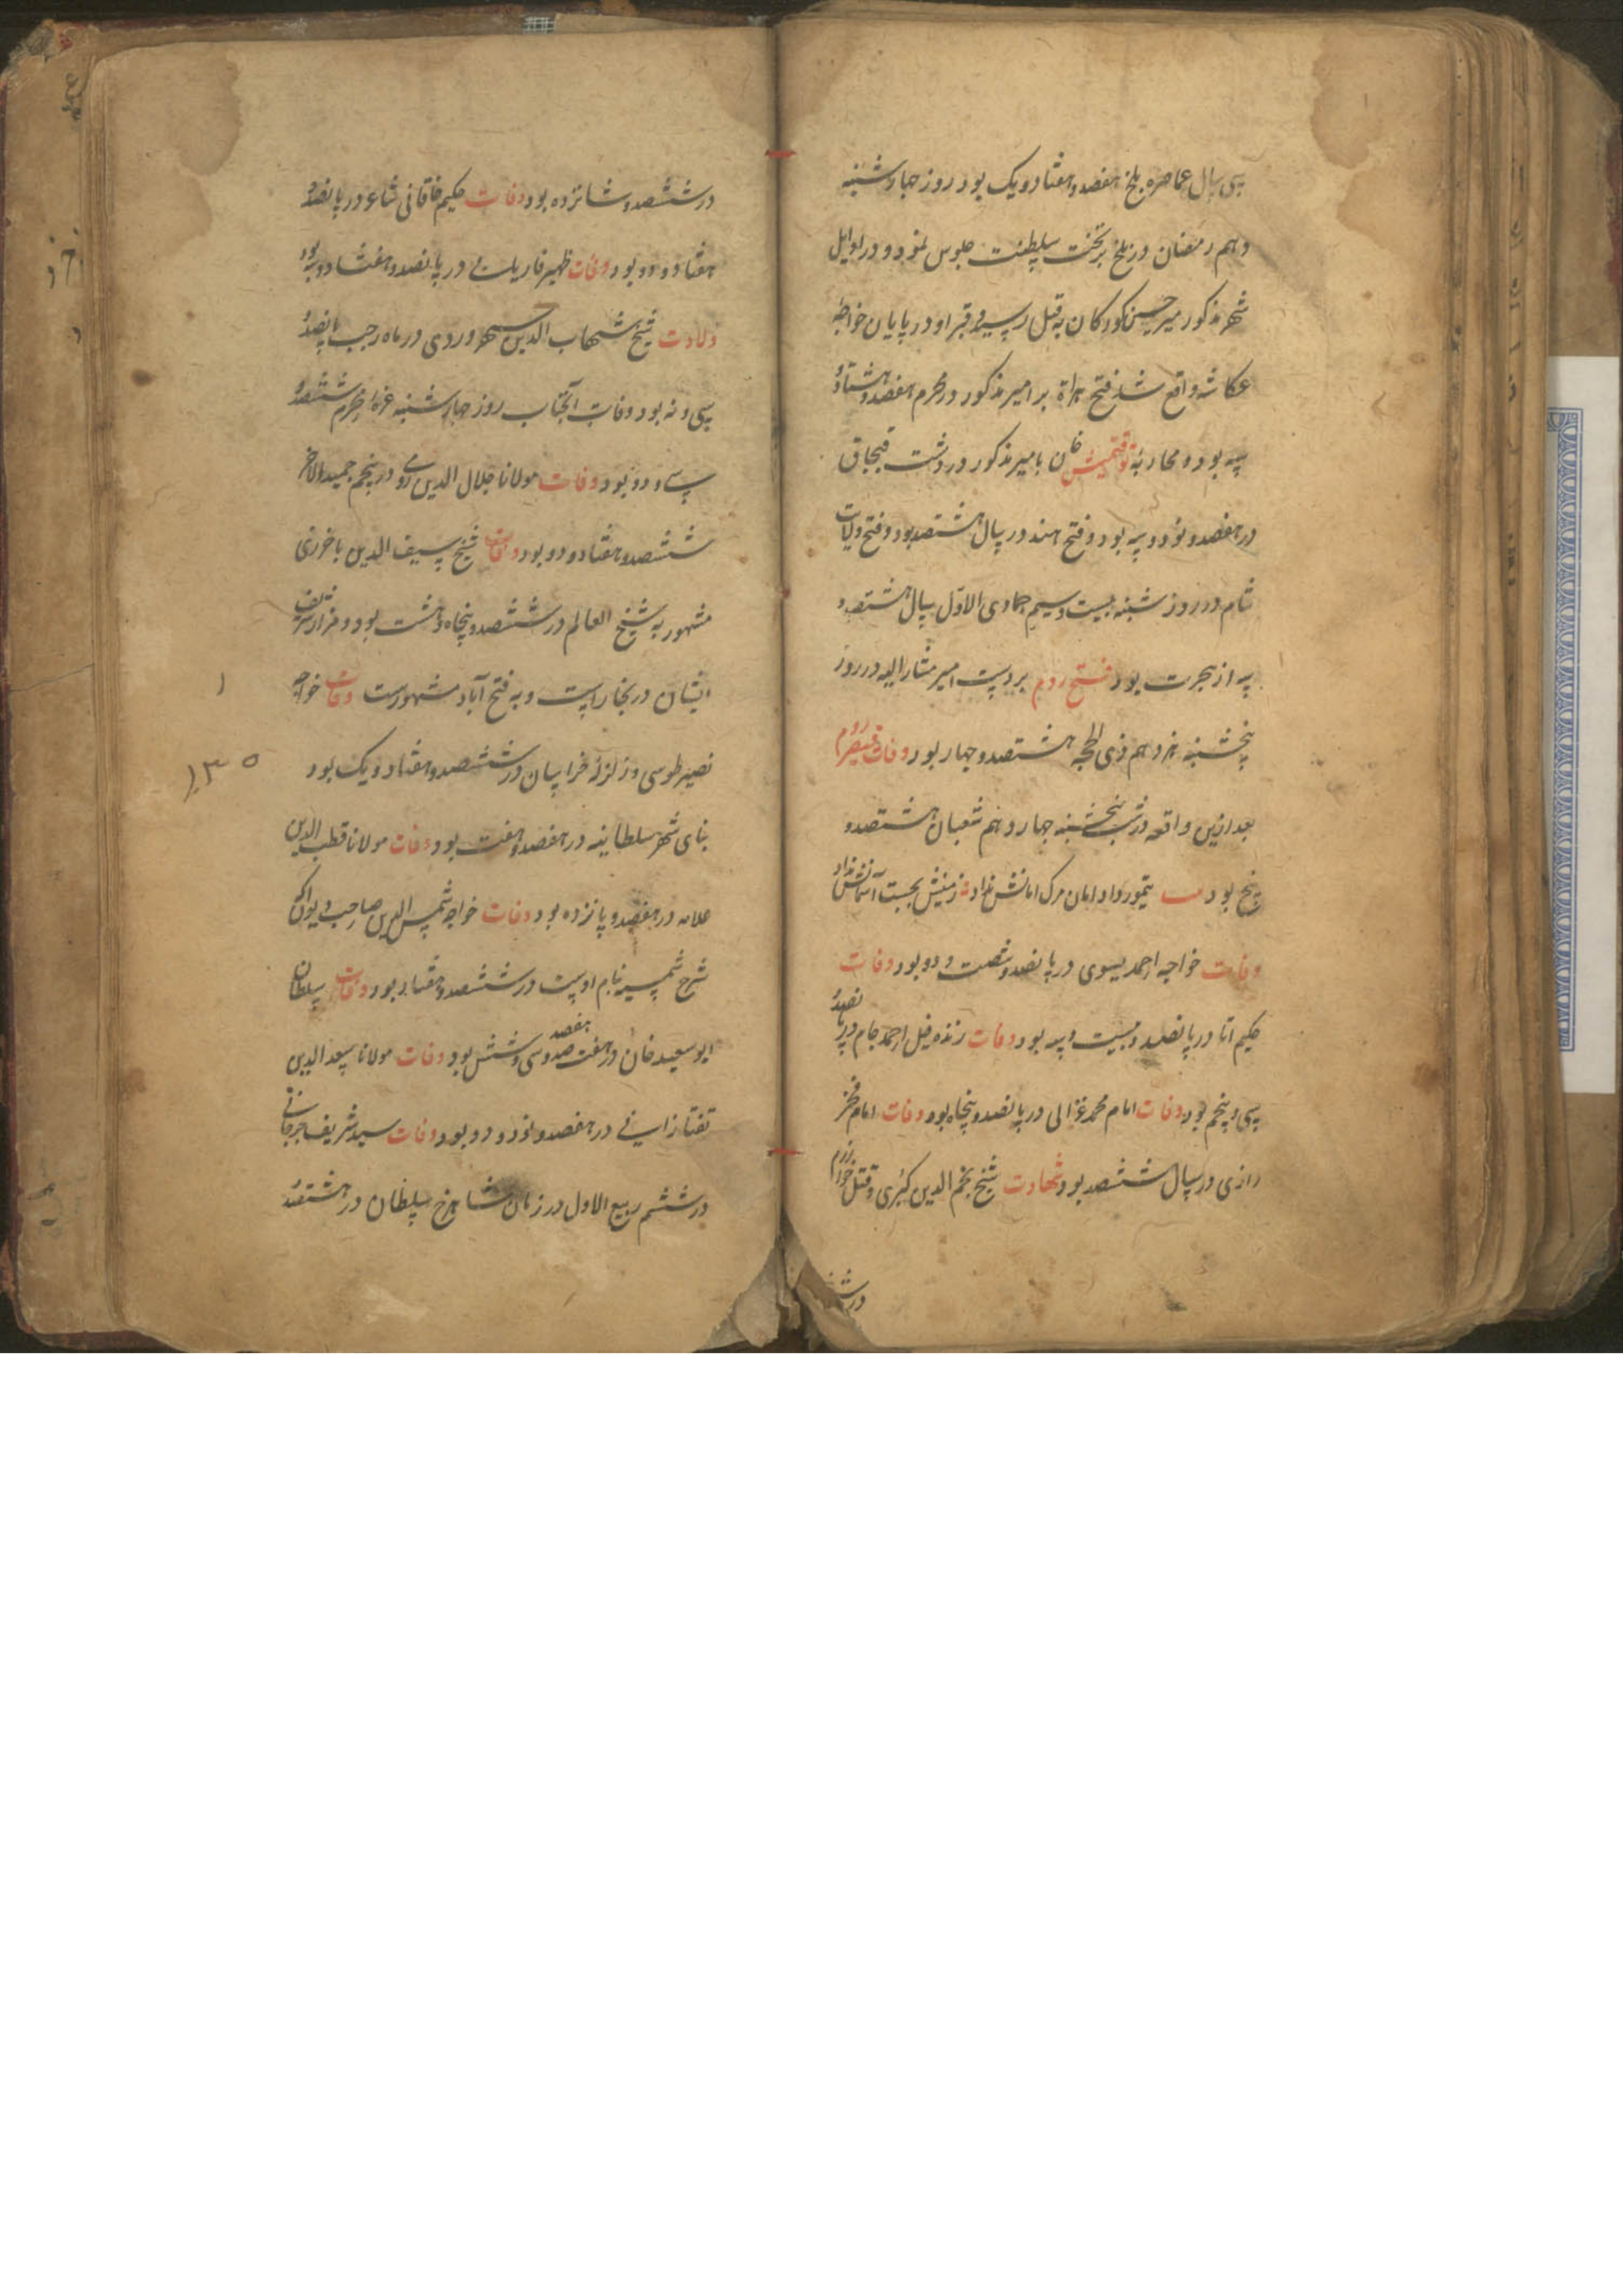 سی سال محاصره بلخ هفصد و هفتاد و یک بود روز چهارشنبه
دهم رمضان در بلخ بر تخت سلطنت جلوس نمود و در اوایل
شهر مذکور میر حسین کورکان به قتل رسید و قبر او در پایان خواجه
عکاشه واقع شد فتح هراة بر امیر مذکور در محرم هفصد و هشتاد و
سه بود و محاربه توقتمیش خان با میر مذکور در دشت قبچاق
در هفصد و نود و سه بود و فتح هند در سال هشتصد بود و فتح ولایت
شام در روز شنبه بیست و سیم جمادی الاول سال هشتصد و
سه از هجرت بود فتح روم بر دست امیر مشار الیه در روز
پنجشنبه نزدهم ذی الحجه هشتصد و چهار بود وفات قیصر روم
بعد ازین واقعه در شب پنجشنبه چهاردهم شعبان هشتصد و
پنج بود تیمور داد امان مرک امانش نداد زمینش بجست آسمانش نداد
وفات خواجه احمد یسوی در پانصد و شصت و دو بود وفات
حکیم اتا در پانصد و بیست و سه بود وفات زنده فیل احمد جام در پانصد و
سی و پنجم بود وفات امام محمد غزالی در پانصد و پنجاه بود وفات امام فخر
رازی در سال ششصد بود شهادت شیخ نجم الدین کبری و قتل خوارزم
در شش
در ششصد و شانزده بود وفات حکیم خاقانی شاعر در پانصد و
هفتاد و دو بود وفات ظهیر فاریابی در پانصد و هفتاد و سه بود
ولادت شیخ شهاب الدین سهروردی در ماه رجب پانصد و
سی و نه بود وفات آنجناب روز چهارشنبه غره محرم ششصد و
سی و دو بود وفات مولانا جلال الدین رومی در پنجم جمید الاخر
ششصد و هفتاد و دو بود وفات شیخ سیف الدین باخرزی
مشهور به شیخ العالم در ششصد و پنجاه و هشت بود و مزار شریف
ایشان در بخاراست و به فتح آباد مشهورست وفات خواجه
نصیر طوسی و زلزلهٔ خراسان در ششصد و هفتاد و یک بود
۱۳۵
بنای شهر سلطانیه در هفصد و هفت بود وفات مولانا قطب الدین
علامه در هفصد و پانزده بود وفات خواجه شمس الدین صاحب دیوان که
شرح شمسیه بنام اوست در ششصد و هفتاد بود وفات سلطان
هفصد
ابو سعید خان در هفت صد و سی و شش بود وفات مولانا سعد الدین
تفتازانی در هفصد و نود و دو بود وفات سید شریف جرجانی
در ششم ربیع الاول در زمان شاهرخ سلطان در هشتصد